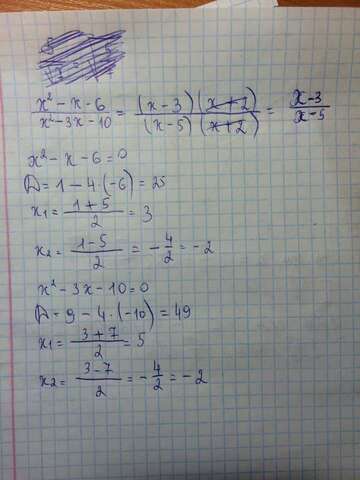 x² - x - 6 / x² - 3x - 10 = (x - 3)(x + 2) / (x - 5)(x + 2) = x - 3 / x - 5
x² - x - 6 = 0
D = 1 - 4·(-6) = 25
x₁ = 1 + 5 / 2 = 3
x₂ = 1 - 5 / 2 = - 4 / 2 = - 2
x² - 3x - 10 = 0
D = 9 - 4·(-10) = 49
x₁ = 3 + 7 / 2 = 5
x₂ = 3 - 7 / 2 = - 4 / 2 = - 2